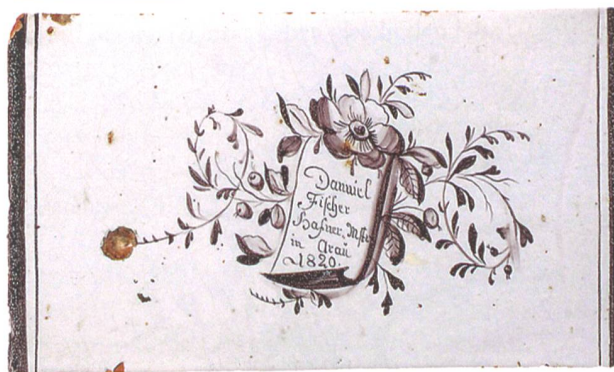 Danniel
Fischer
Hafner, Mstr
in Arau
1820.